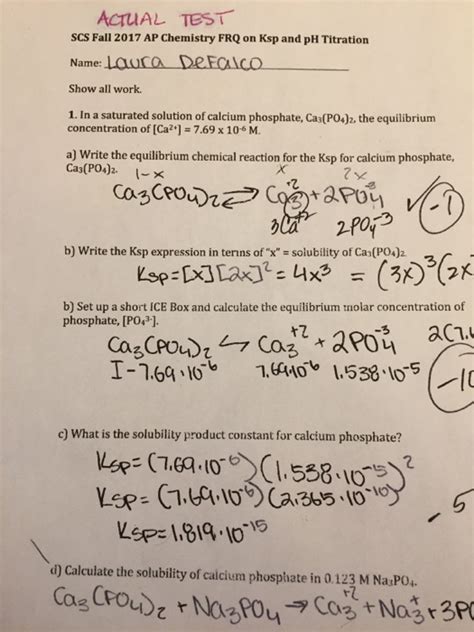 ACTUAL TEST
SCS Fall 2017 AP Chemistry FRQ on Ksp and pH Titration
Name: Laura DeFalco
Show all work.
1. In a saturated solution of calcium phosphate, Ca₃(PO₄)₂, the equilibrium
concentration of [Ca²⁺] = 7.69 x 10⁻⁶ M.
a) Write the equilibrium chemical reaction for the Ksp for calcium phosphate,
Ca₃(PO₄)₂.
1-x x 2x
Ca₃(PO₄)₂ ⇌ Ca₃⁺² + 2PO₄⁻³ ✓ -1
3Ca⁺² 2PO₄⁻³
b) Write the Ksp expression in terms of "x" = solubility of Ca₃(PO₄)₂
Ksp = [x][2x]² = 4x³ = (3x)³(2x
b) Set up a short ICE Box and calculate the equilibrium molar concentration of
phosphate, [PO₄³⁻].
Ca₃(PO₄)₂ ⇌ Ca₃⁺² + 2PO₄⁻³ 2(7.6
I-7.69·10⁻⁶ 7.69·10⁻⁶ 1.538·10⁻⁵
c) What is the solubility product constant for calcium phosphate?
Ksp = (7.69·10⁻⁶)(1.538·10⁻⁵)²
Ksp = (7.69·10⁻⁶)(2.365·10⁻¹⁰)
Ksp = 1.819·10⁻¹⁵
d) Calculate the solubility of calcium phosphate in 0.123 M Na₃PO₄.
Ca₃(PO₄)₂ + Na₃PO₄ → Ca₃⁺² + Na₃⁺ + 3PO